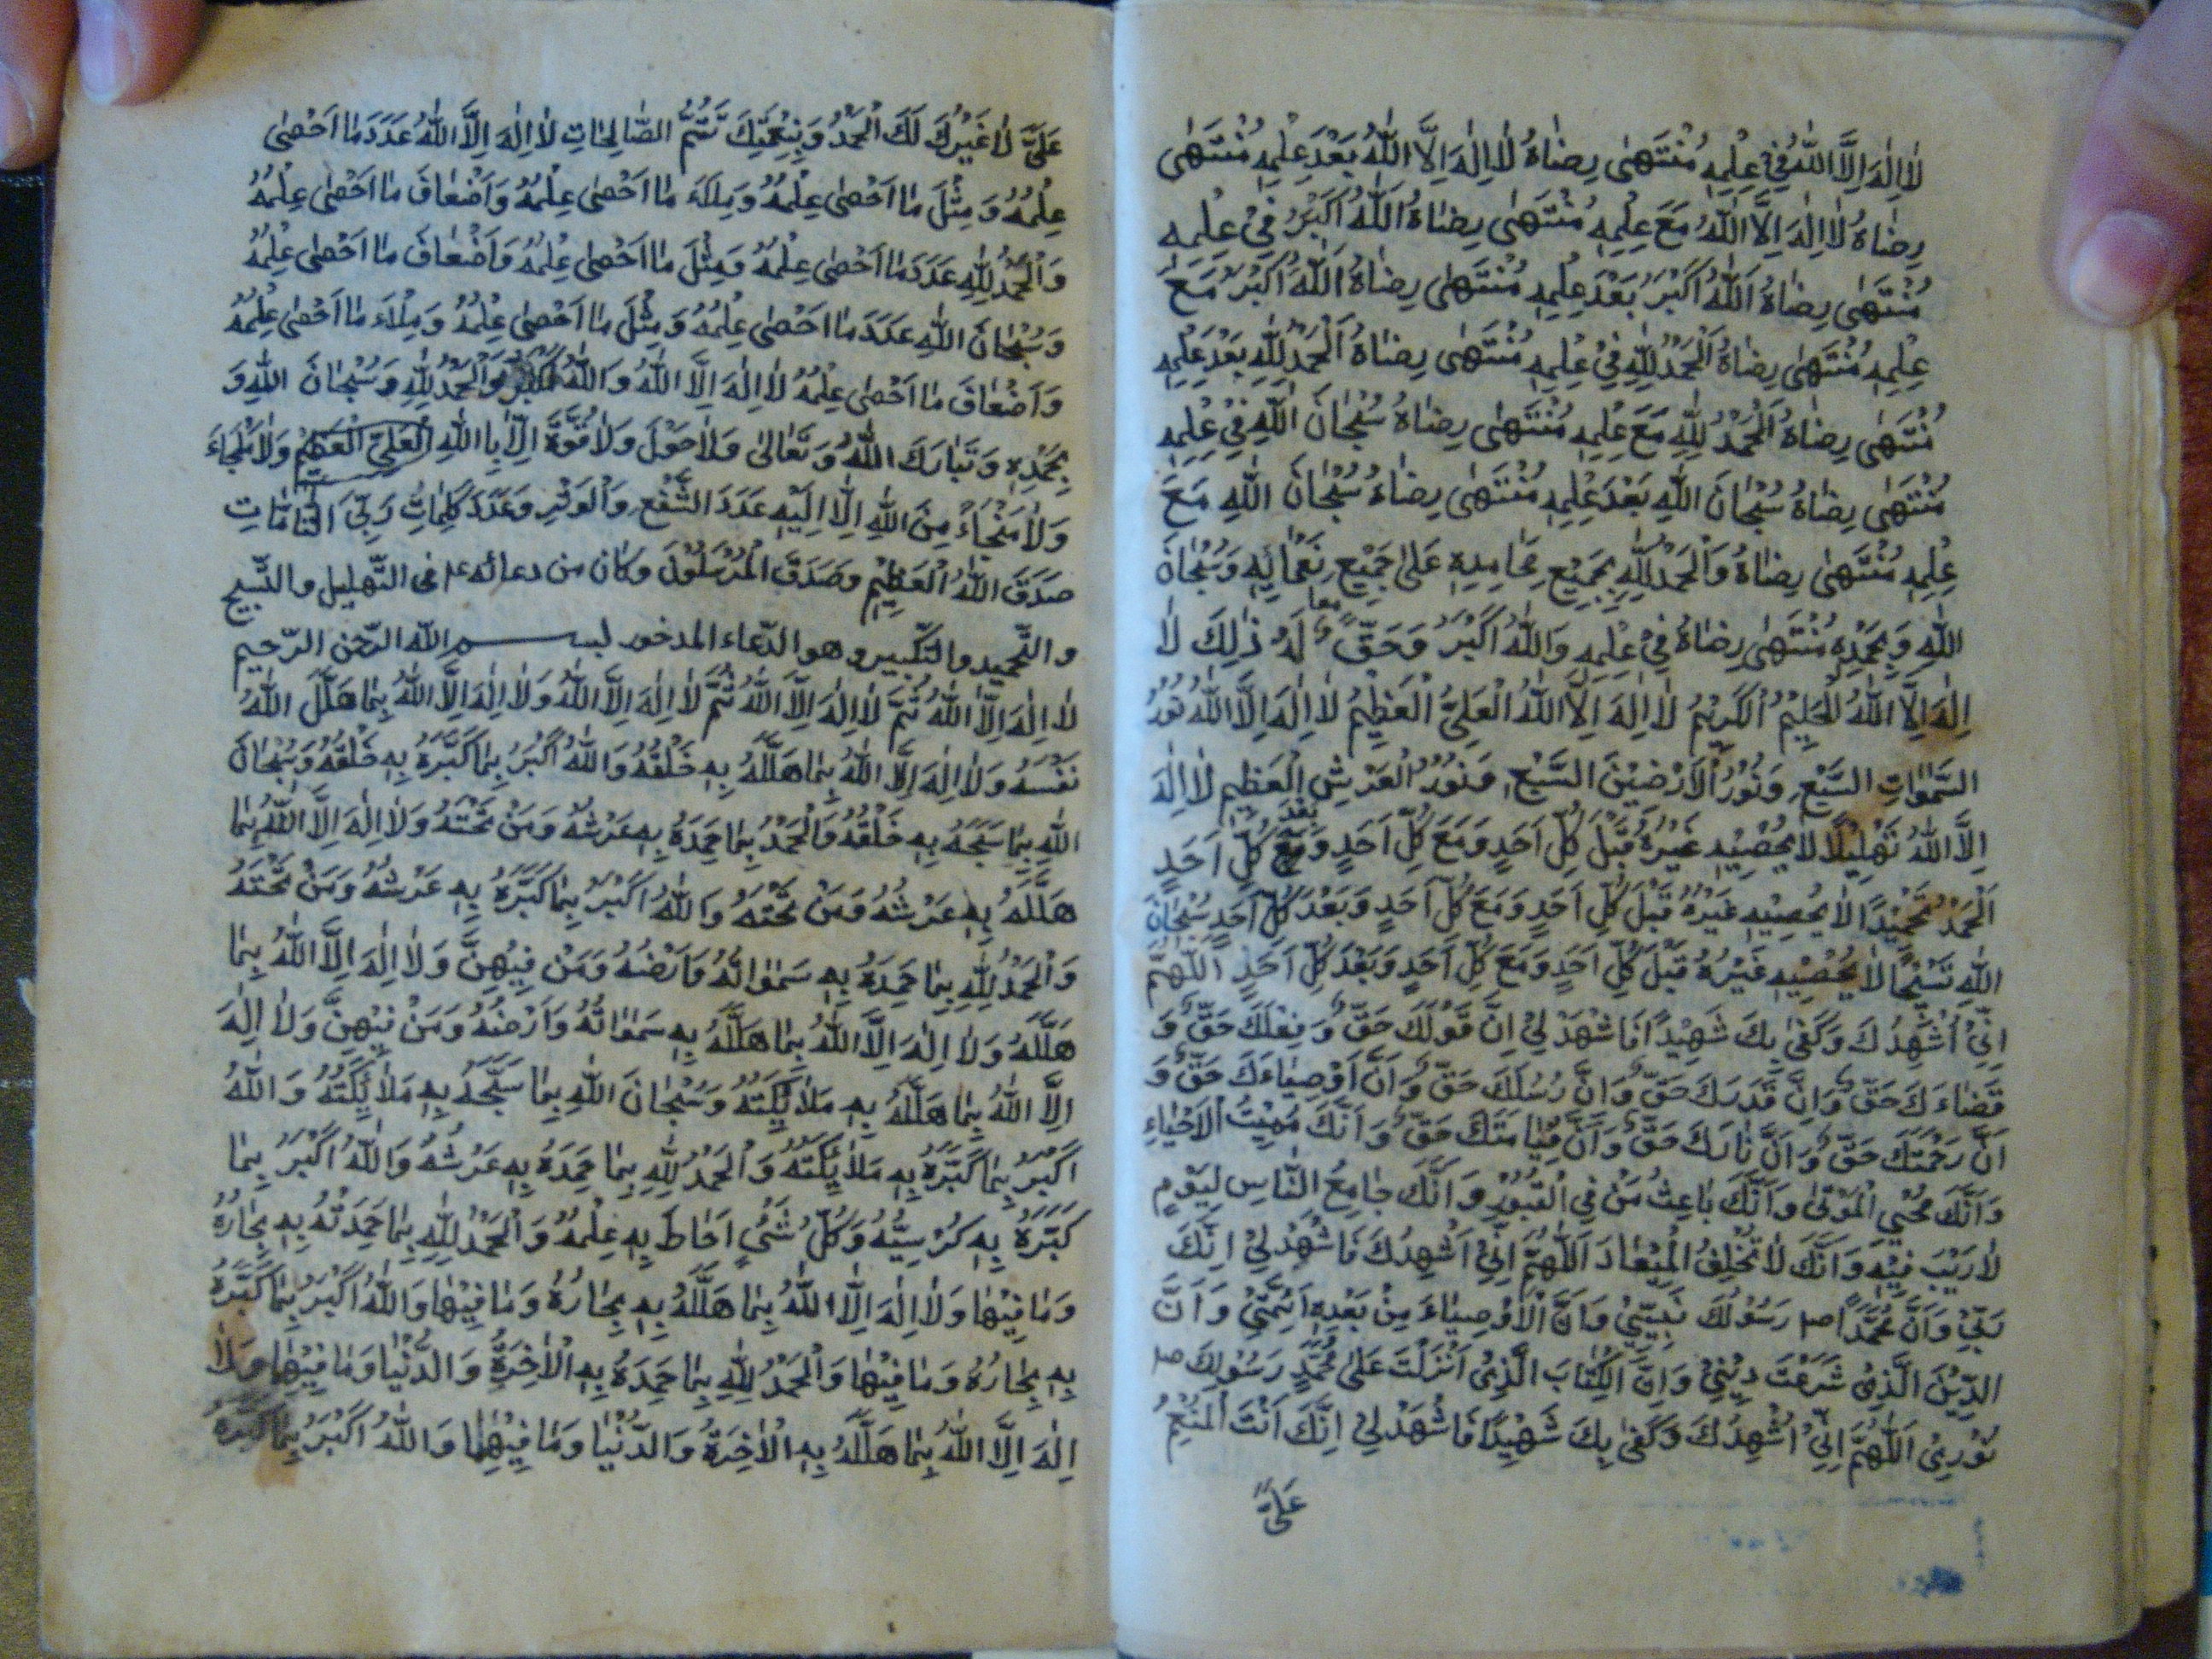 لَا اِلٰهَ اِلَّا اللّٰهُ فِي عِلْمِهِ مُنْتَهٰى رِضَاهُ لَا اِلٰهَ اِلَّا اللّٰهُ بَعْدَ عِلْمِهِ مُنْتَهٰى
رِضَاهُ لَا اِلٰهَ اِلَّا اللّٰهُ مَعَ عِلْمِهِ مُنْتَهٰى رِضَاهُ اَللّٰهُ اَكْبَرُ فِي عِلْمِهِ
مُنْتَهٰى رِضَاهُ اَللّٰهُ اَكْبَرُ بَعْدَ عِلْمِهِ مُنْتَهٰى رِضَاهُ اَللّٰهُ اَكْبَرُ مَعَ
عِلْمِهِ مُنْتَهٰى رِضَاهُ اَلْحَمْدُ لِلّٰهِ فِي عِلْمِهِ مُنْتَهٰى رِضَاهُ اَلْحَمْدُ لِلّٰهِ بَعْدَ عِلْمِهِ
مُنْتَهٰى رِضَاهُ اَلْحَمْدُ لِلّٰهِ مَعَ عِلْمِهِ مُنْتَهٰى رِضَاهُ سُبْحَانَ اللّٰهِ فِي عِلْمِهِ
مُنْتَهٰى رِضَاهُ سُبْحَانَ اللّٰهِ بَعْدَ عِلْمِهِ مُنْتَهٰى رِضَاهُ سُبْحَانَ اللّٰهِ مَعَ
عِلْمِهِ مُنْتَهٰى رِضَاهُ وَالْحَمْدُ لِلّٰهِ بِجَمِيْعِ مَحَامِدِهِ عَلٰى جَمِيْعِ نَعْمَائِهِ وَسُبْحَانَ
اللّٰهِ وَبِحَمْدِهِ مُنْتَهٰى رِضَاهُ فِيْ عِلْمِهِ وَاللّٰهُ اَكْبَرُ وَحَقٌّ معا لَهُ ذٰلِكَ لَا
اِلٰهَ اِلَّا اللّٰهُ الْحَلِيْمُ الْكَرِيْمُ لَا اِلٰهَ اِلَّا اللّٰهُ الْعَلِيُّ الْعَظِيْمُ لَا اِلٰهَ اِلَّا اللّٰهُ نُوْرُ
السَّمٰوَاتِ السَّبْعِ وَنُوْرُ الْاَرْضِيْنَ السَّبْعِ وَنُوْرُ الْعَرْشِ الْعَظِيْمِ لَا اِلٰهَ
اِلَّا اللّٰهُ تَهْلِيْلًا لَا يُحْصِيْهِ غَيْرُهُ قَبْلَ كُلِّ اَحَدٍ وَمَعَ كُلِّ اَحَدٍ وَبَعْدَ كُلِّ اَحَدٍ
اَلْحَمْدُ تَحْمِيْدًا لَا يُحْصِيْهِ غَيْرُهُ قَبْلَ كُلِّ اَحَدٍ وَمَعَ كُلِّ اَحَدٍ وَبَعْدَ كُلِّ اَحَدٍ سُبْحَانَ
اللّٰهِ تَسْبِيْحًا لَا يُحْصِيْهِ غَيْرُهُ قَبْلَ كُلِّ اَحَدٍ وَمَعَ كُلِّ اَحَدٍ وَبَعْدَ كُلِّ اَحَدٍ اَللّٰهُمَّ
اِنِّيْ اُشْهِدُكَ وَكَفٰى بِكَ شَهِيْدًا فَاشْهَدْ لِيْ اِنَّ قَوْلَكَ حَقٌّ وَفِعْلَكَ حَقٌّ وَ
قَضَاءَكَ حَقٌّ وَاِنَّ قَدَرَكَ حَقٌّ وَاِنَّ رُسُلَكَ حَقٌّ وَاَنَّ اَوْصِيَاءَكَ حَقٌّ وَ
اَنَّ رَحْمَتَكَ حَقٌّ وَاَنَّ نَارَكَ حَقٌّ وَاَنَّ قِيَامَتَكَ حَقٌّ وَاَنَّكَ مُمِيْتُ الْاَحْيَاءِ
وَاَنَّكَ مُحْيِي الْمَوْتٰى وَاَنَّكَ بَاعِثُ مَنْ فِي الْقُبُوْرِ وَاَنَّكَ جَامِعُ النَّاسِ لِيَوْمٍ
لَا رَيْبَ فِيْهِ وَاَنَّكَ لَا تُخْلِفُ الْمِيْعَادَ اَللّٰهُمَّ اِنِّيْ اُشْهِدُكَ فَاشْهَدْ لِيْ اِنَّكَ
رَبِّيْ وَاَنَّ مُحَمَّدًا ص م رَسُوْلُكَ نَبِيِّيْ وَاَنَّ الْاَوْصِيَاءَ مِنْ بَعْدِهِ اَئِمَّتِيْ وَاَنَّ
الدِّيْنَ الَّذِيْ شَرَعْتَ دِيْنِيْ وَاِنَّ الْكِتَابَ الَّذِيْ اَنْزَلْتَ عَلٰى مُحَمَّدٍ رَسُوْلِكَ
نُوْرِيْ اَللّٰهُمَّ اِنِّيْ اُشْهِدُكَ وَكَفٰى بِكَ شَهِيْدًا فَاشْهَدْ لِيْ اِنَّكَ اَنْتَ الْمُنْعِمُ
عَلَيَّ
عَلَيَّ لَا غَيْرُكَ لَكَ الْحَمْدُ وَبِنِعْمَتِكَ تَتِمُّ الصَّالِحَاتِ لَا اِلٰهَ اِلَّا اللّٰهُ عَدَدَ مَا اَحْصٰى
عِلْمُهُ وَمِثْلَ مَا اَحْصٰى عِلْمُهُ وَمِلَاءَ مَا اَحْصٰى عِلْمُهُ وَاَضْعَافَ مَا اَحْصٰى عِلْمُهُ
وَالْحَمْدُ لِلّٰهِ عَدَدَ مَا اَحْصٰى عِلْمُهُ وَمِثْلَ مَا اَحْصٰى عِلْمُهُ وَاَضْعَافَ مَا اَحْصٰى عِلْمُهُ
وَسُبْحَانَ اللّٰهِ عَدَدَ مَا اَحْصٰى عِلْمُهُ وَمِثْلَ مَا اَحْصٰى عِلْمُهُ وَمِلَاءَ مَا اَحْصٰى عِلْمُهُ
وَاَضْعَافَ مَا اَحْصٰى عِلْمُهُ لَا اِلٰهَ اِلَّا اللّٰهُ وَاللّٰهُ اَكْبَرُ وَالْحَمْدُ لِلّٰهِ وَسُبْحَانَ اللّٰهِ وَ
بِحَمْدِهِ وَتَبَارَكَ اللّٰهُ وَتَعَالٰى وَلَا حَوْلَ وَلَا قُوَّةَ اِلَّا بِاللّٰهِ الْعَلِيِّ الْعَظِيْمِ وَلَا مَلْجَاءَ
وَلَا مَنْجَاءَ مِنَ اللّٰهِ اِلَّا اِلَيْهِ عَدَدَ الشَّفْعِ وَالْوَتْرِ وَعَدَدَ كَلِمَاتِ رَبِّيَ التَّامَّاتِ
صَدَقَ اللّٰهُ الْعَظِيْمُ وَصَدَقَ الْمُرْسَلُوْنَ وكان من دعائه ع م فى التّهليل والتّسبيح
والتّحميد والتكبير و هو الدّعاء المدخور بسم اللّٰه الرّحمن الرّحيم
لَا اِلٰهَ اِلَّا اللّٰهُ ثُمَّ لَا اِلٰهَ اِلَّا اللّٰهُ ثُمَّ لَا اِلٰهَ اِلَّا اللّٰهُ وَلَا اِلٰهَ اِلَّا اللّٰهُ بِمَا هَلَّلَ اللّٰهُ
نَفْسَهُ وَلَا اِلٰهَ اِلَّا اللّٰهُ بِمَا هَلَّلَهُ بِهِ خَلْقُهُ وَاللّٰهُ اَكْبَرُ بِمَا كَبَّرَهُ بِهِ خَلْقُهُ وَسُبْحَانَ
اللّٰهِ بِمَا سَبَّحَهُ بِهِ خَلْقُهُ وَالْحَمْدُ بِمَا حَمِدَهُ بِهِ عَرْشُهُ وَمَنْ تَحْتَهُ وَلَا اِلٰهَ اِلَّا اللّٰهُ بِمَا
هَلَّلَهُ بِهِ عَرْشُهُ وَمَنْ تَحْتَهُ وَاللّٰهُ اَكْبَرُ بِمَا كَبَّرَهُ بِهِ عَرْشُهُ وَمَنْ تَحْتَهُ
وَالْحَمْدُ لِلّٰهِ بِمَا حَمِدَهُ بِهِ سَمٰوَاتُهُ وَاَرْضُهُ وَمَنْ فِيْهِنَّ وَلَا اِلٰهَ اِلَّا اللّٰهُ بِمَا
هَلَّلَهُ وَلَا اِلٰهَ اِلَّا اللّٰهُ بِمَا هَلَّلَهُ بِهِ سَمٰوَاتُهُ وَاَرْضُهُ وَمَنْ فِيْهِنَّ وَلَا اِلٰهَ
اِلَّا اللّٰهُ بِمَا هَلَّلَهُ بِهِ مَلَائِكَتُهُ وَسُبْحَانَ اللّٰهِ بِمَا سَبَّحَهُ بِهِ مَلَائِكَتُهُ وَاللّٰهُ
اَكْبَرُ بِمَا كَبَّرَهُ بِهِ مَلَائِكَتُهُ وَالْحَمْدُ لِلّٰهِ بِمَا حَمِدَهُ بِهِ عَرْشُهُ وَاللّٰهُ اَكْبَرُ بِمَا
كَبَّرَهُ بِهِ كُرْسِيُّهُ وَكُلُّ شَيْءٍ اَحَاطَ بِهِ عِلْمُهُ وَالْحَمْدُ لِلّٰهِ بِمَا حَمِدَتْهُ بِهِ بِحَارُهُ
وَمَا فِيْهَا وَلَا اِلٰهَ اِلَّا اللّٰهُ بِمَا هَلَّلَهُ بِهِ بِحَارُهُ وَمَا فِيْهَا وَاللّٰهُ اَكْبَرُ بِمَا كَبَّرَهُ
بِهِ بِحَارُهُ وَمَا فِيْهَا وَالْحَمْدُ لِلّٰهِ بِمَا حَمِدَهُ بِهِ الْاٰخِرَةُ وَالدُّنْيَا وَمَا فِيْهَا وَلَا
اِلٰهَ اِلَّا اللّٰهُ بِمَا هَلَّلَهُ بِهِ الْاٰخِرَةُ وَالدُّنْيَا وَمَا فِيْهِمَا وَاللّٰهُ اَكْبَرُ بِمَا كَبَّرَهُ